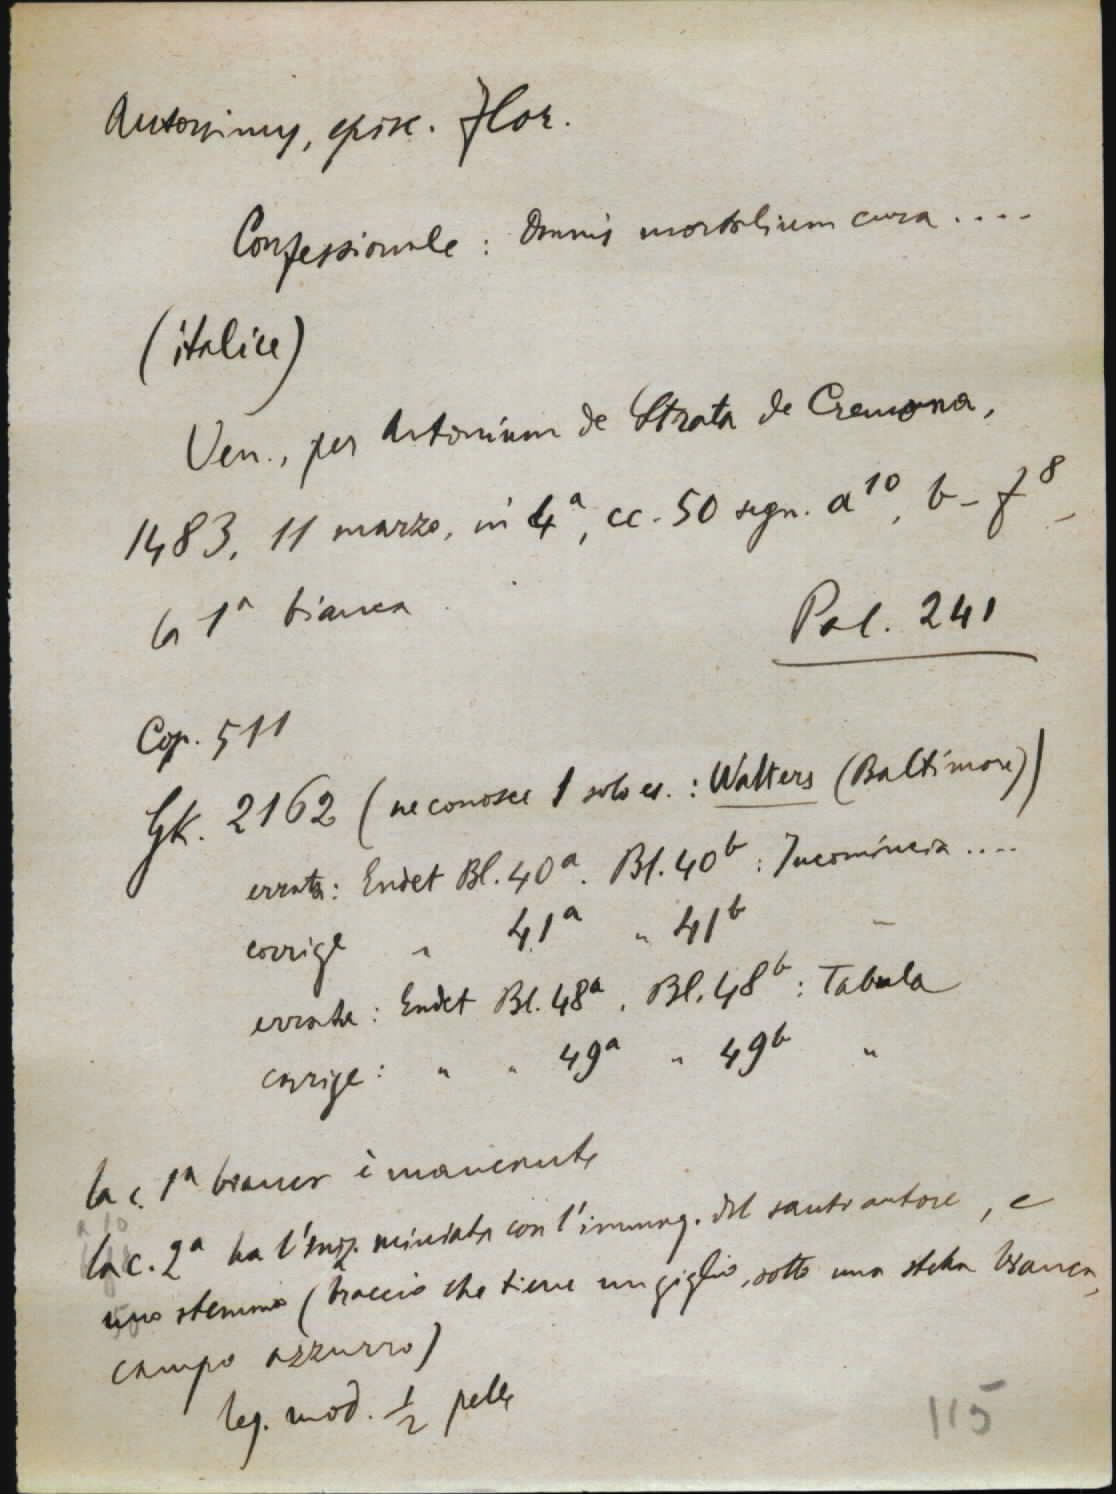 Antoninus, episc. Flor.
Confessionale : Omnis mortalium cura ....
(italice)
Ven., per Antonium de Strata de Cremona,
1483, 11 marzo, in 4ª, cc. 50 segn. a¹⁰, b-f⁸,
la 1ª bianca
Pal. 241
Cop. 511
Gk. 2162 (ne conosce 1 solo es. : Walters (Baltimore))
errata: Endet Bl. 40ª. Bl. 40ᵇ : Incomincia ....
corrige " 41ª " 41ᵇ –
errata : Endet Bl. 48ª. Bl. 48ᵇ : Tabula
corrige : " " 49ª " 49ᵇ "
la c. 1ª bianca è mancante
a 10
la c. 2ª ha l'iniz. miniata con l'immag. del santo autore, e
uno stemma (braccio che tiene un giglio, sotto una stella bianca,
campo azzurro)
leg. mod. ½ pelle
115